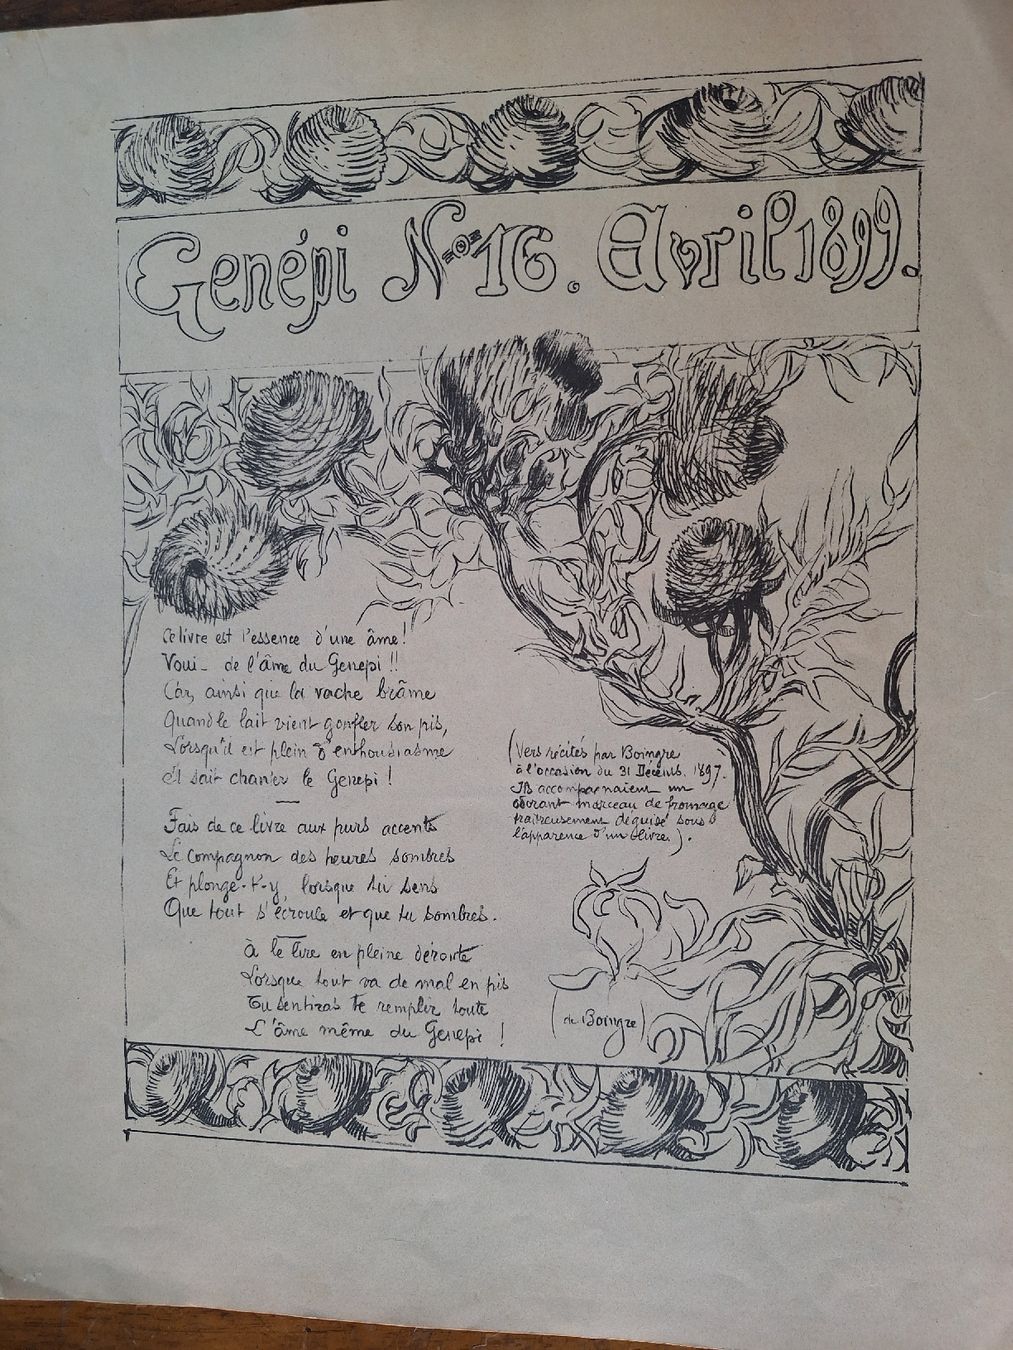 Genépi No 16. Avril 1899.
Ce livre est l'essence d'une âme!
Voui - de l'âme du Genepi!!
Car, ainsi que la vache brâme
Quand le lait vient gonfler son pis,
Lorsqu'il est plein d'enthousiasme
Il sait chanter le Genepi!
Fais de ce livre aux purs accents
Le compagnon des heures sombres
Et plonge-t'y, lorsque tu sens
Que tout s'écroule et que tu sombres.
À le lire en pleine déroute
Lorsque tout va de mal en pis
Tu sentiras te remplir toute
L'âme même du Genepi!
(Vers récités par Boingre
à l'occasion du 31 Décemb. 1897.
Ils accompagnaient un
odorant morceau de fromage
traitreusement déguisé sous
l'apparence d'un livre.).
(de Boingre)